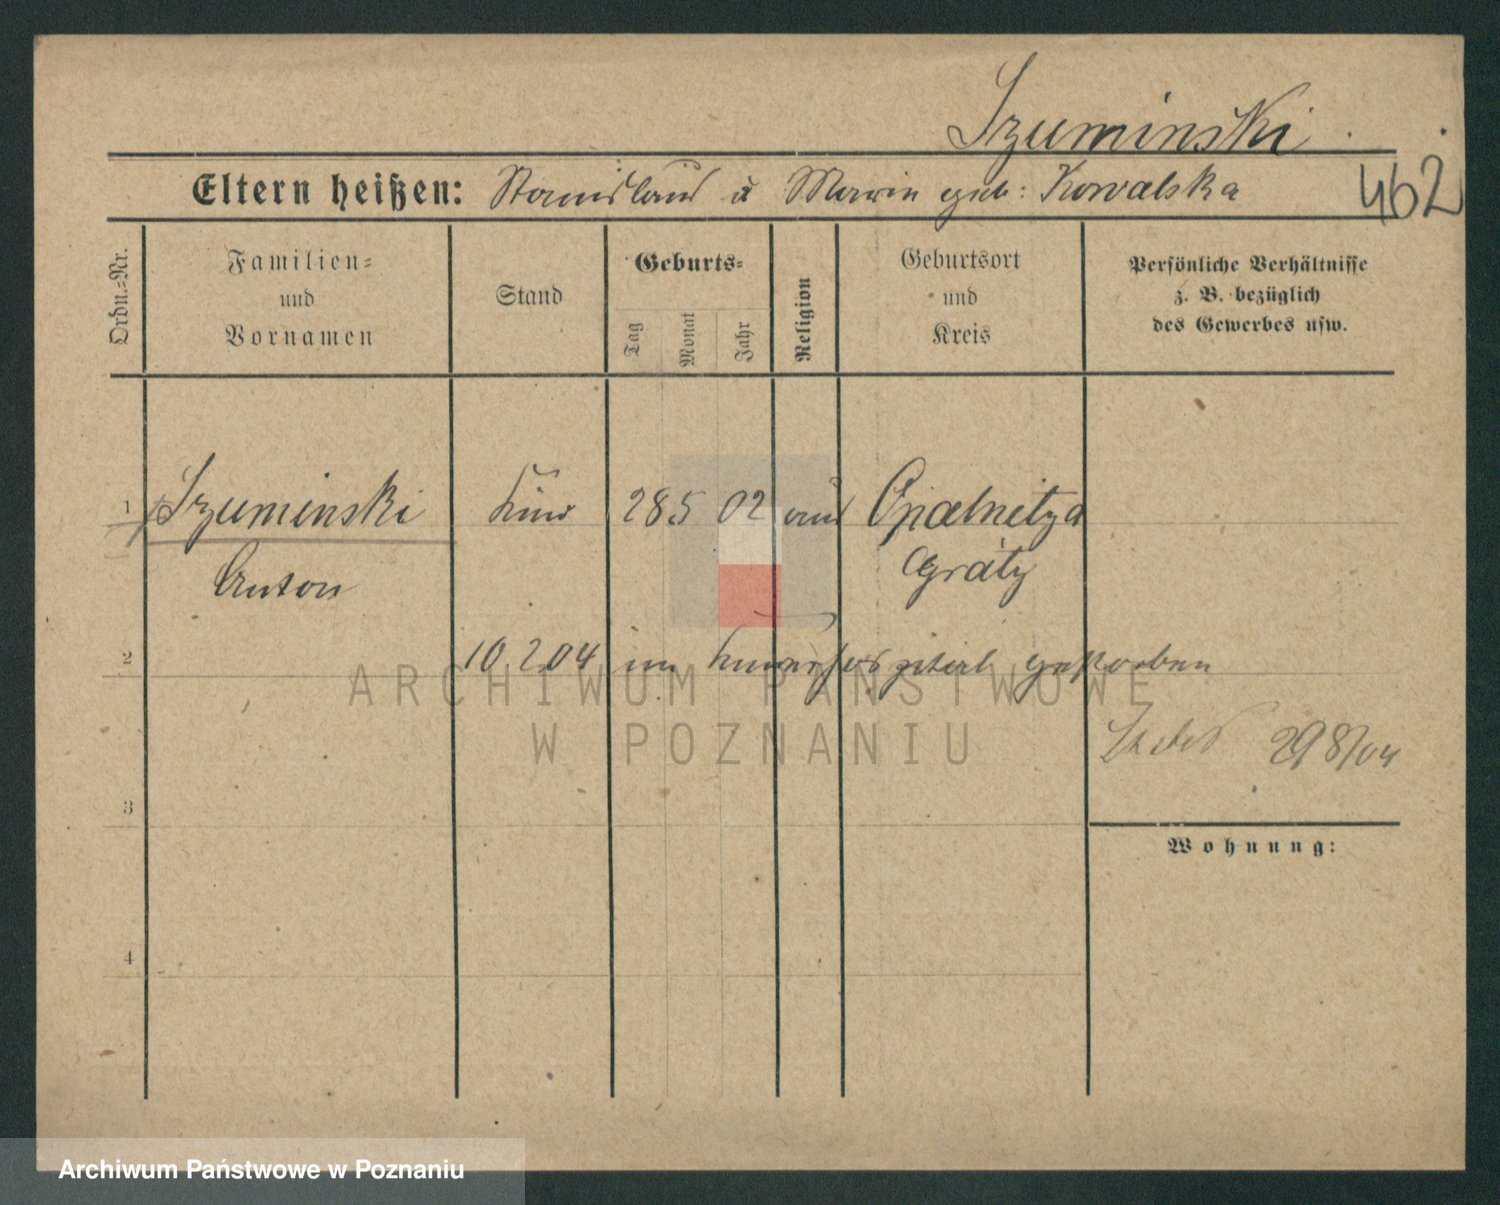 Szuminski
Eltern heißen: Stanislaus u Maria geb: Kowalska
462
Ordn.=Nr.
Familien=
und
Vornamen
Stand
Geburts=
Tag
Monat
Jahr
Religion
Geburtsort
und
Kreis
Persönliche Verhältnisse
z. B. bezüglich
des Gewerbes usw.
1 Szuminski Kind 28 5 02 Opalenitza
Anton Grätz
2 10 2 04 im gestorben
29 8/04
3
Wohnung:
4
ARCHIWUM PAŃSTWOWE
W POZNANIU
Archiwum Państwowe w Poznaniu